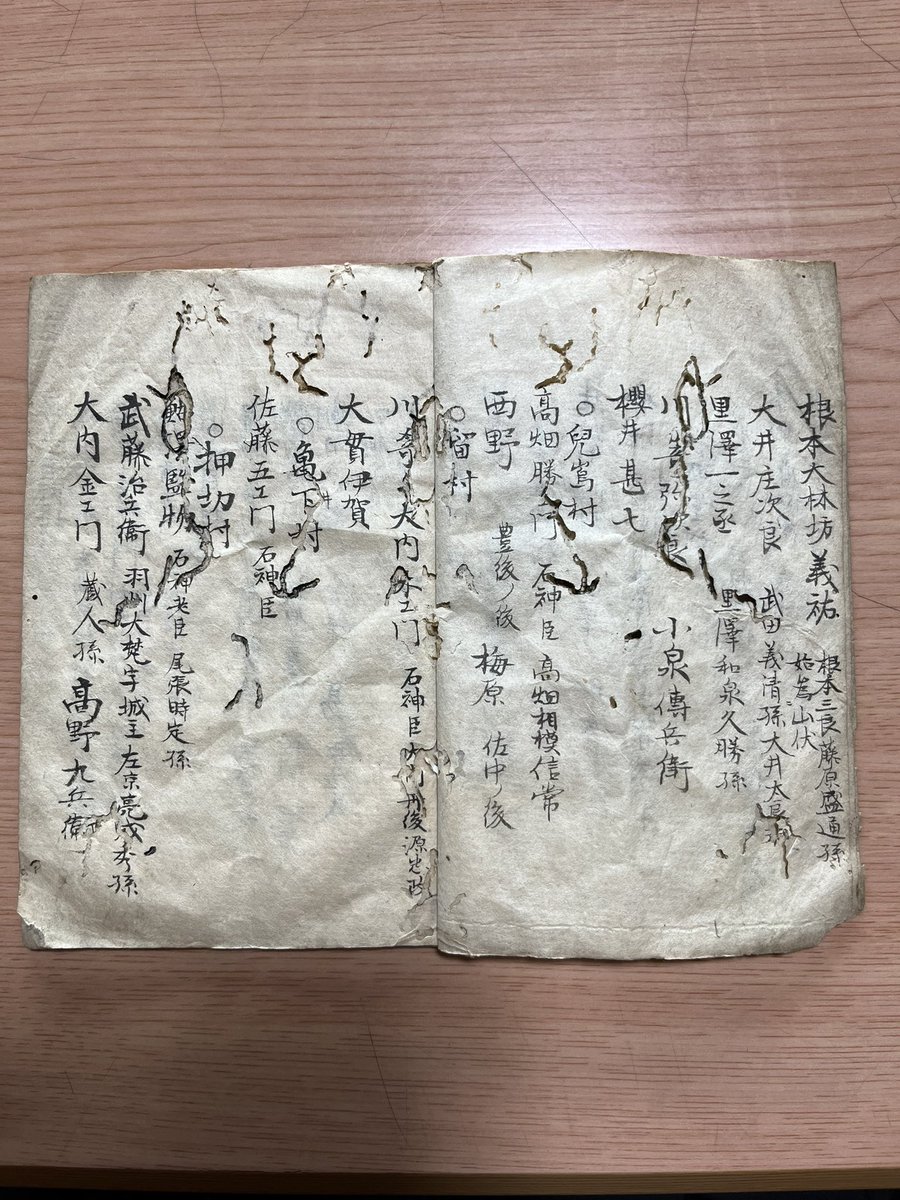 根本大林坊義祐 根本三良藤原盛通孫
始為山伏
大井庄次良 武田義清孫大井太良
黒澤一之丞 黒澤和泉久勝孫
川 弥次良 小泉傳兵衛
櫻井甚七
○兒嶌村
高畑勝 門 石神臣 高畑相模信常
西野 豊後ノ後 梅原 佐中ノ後
○留村
川 大内 工門 石神臣 内丹後源忠政
大貫伊賀
○亀下村
佐藤五エ門 石神臣
○押切村
監物 石神老臣 尾張時定孫
武藤治兵衛 羽州大梵宇城主左京亮成秀孫
大内金エ門 蔵人孫 高野九兵衛